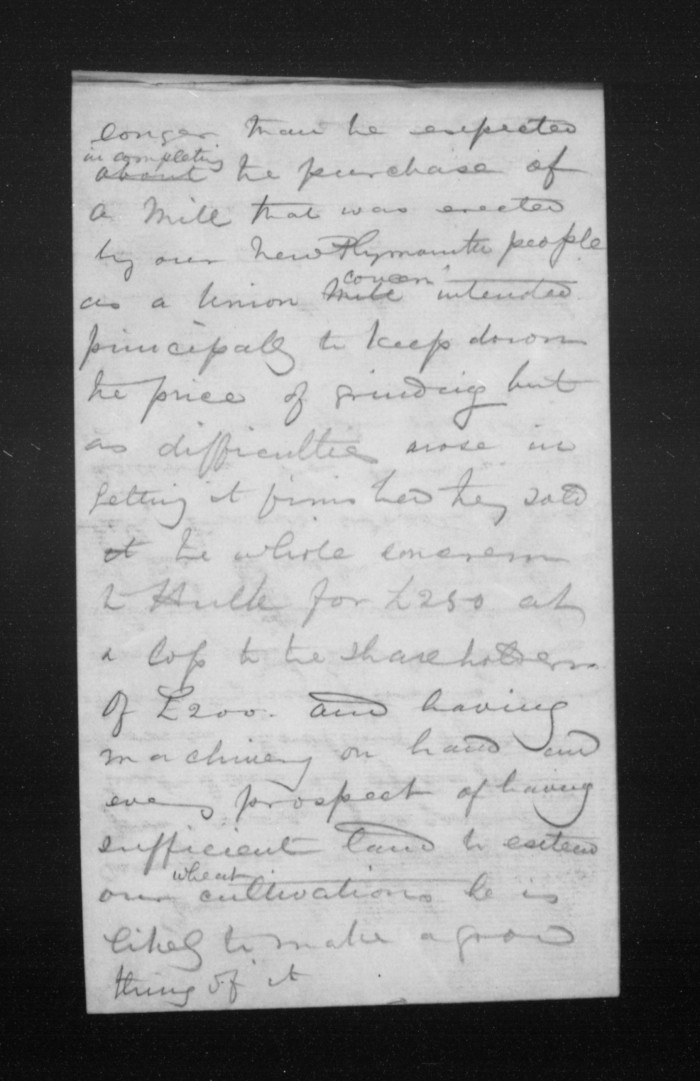 longer than he expected
in completing
about the purchase of
a Mill that was erected
by our New Plymouth people
concern
as a Union Mill intended
principally to keep down
the price of grinding but
as difficulties arose in
getting it finished they sold
it the whole concern
to Hulke for £250 at
a loss to the shareholders
of £200. and having
machinery on hand and
every prospect of having
sufficient land to extend
wheat
our cultivations he is
likely to make a good
thing of it